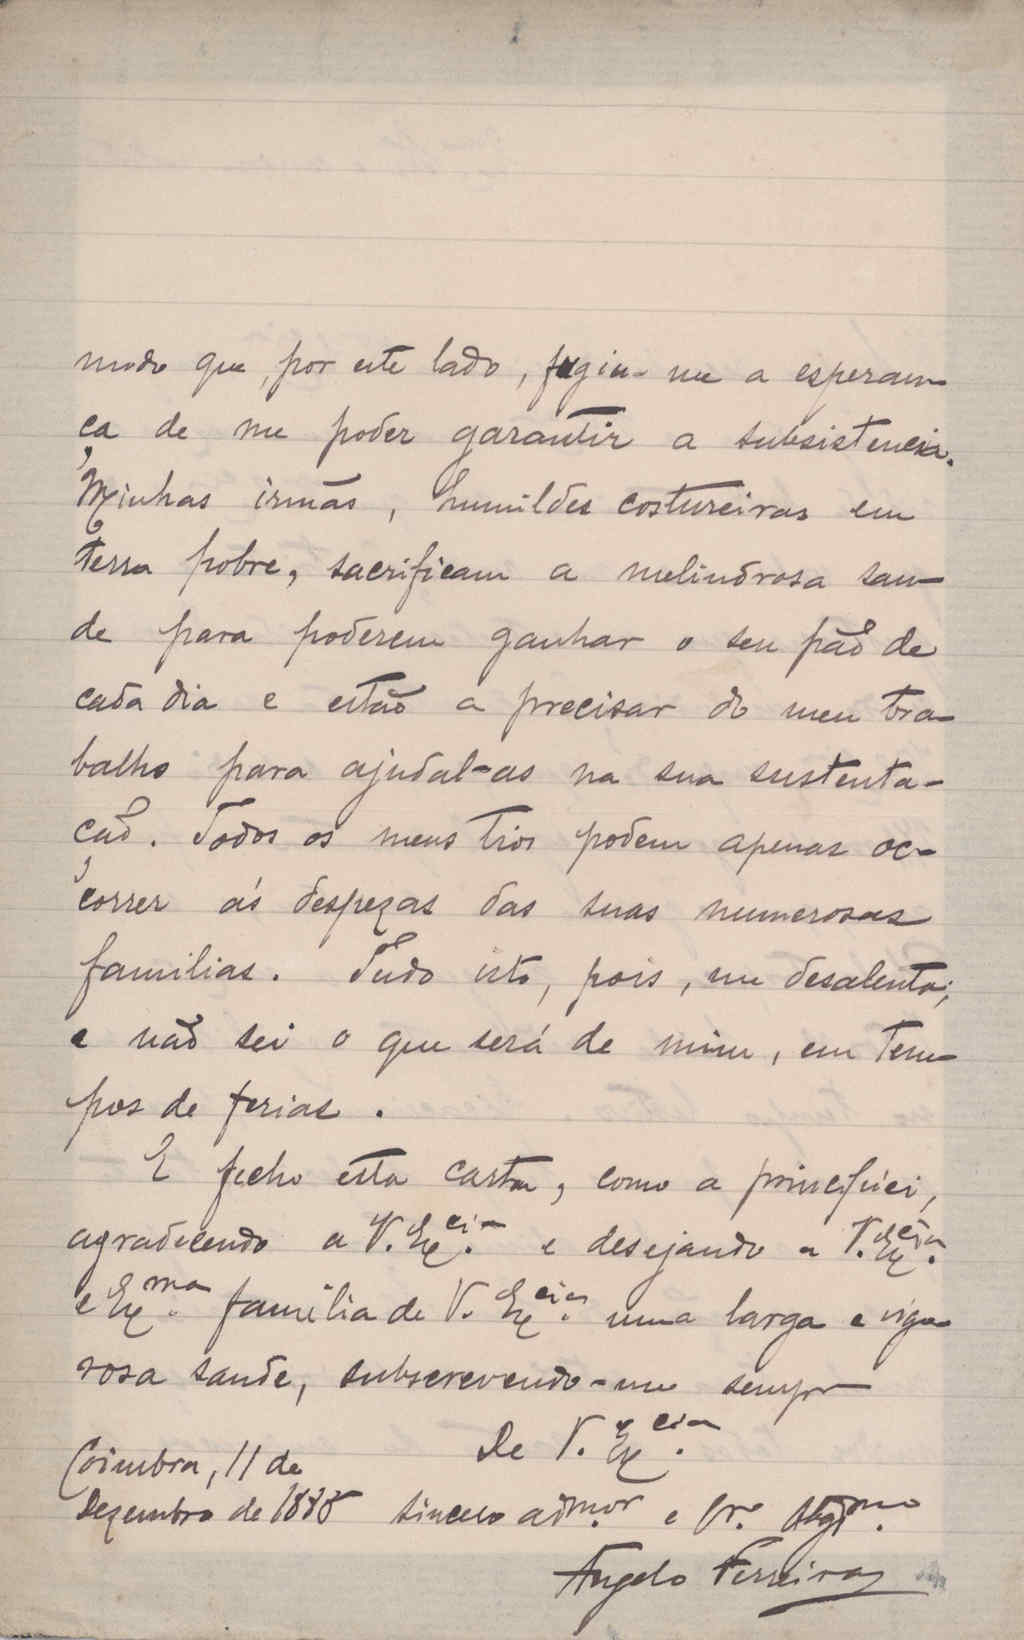 modo que, por este lado, fugiu-me a esperan-
ça de me poder garantir a subsistencia.
Minhas irmãs, humildes costureiras em
terra pobre, sacrificam a melindrosa sau-
de para poderem ganhar o seu pão de
cada dia e estão a precisar do meu tra-
balho para ajudal-as na sua sustenta-
ção. Todos os meus tios podem apenas oc-
correr ás despezas das suas numerosas
familias. Tudo isto, pois, me desalenta;
e não sei o que será de mim, em tem-
pos de ferias.
E fecho esta carta, como a principiei,
agradecendo a V. Ex.cia e desejando a V. Ex.cia
e Ex.ma familia de V. Ex.cia uma larga e vigo-
rosa saude, subscrevendo-me sempre
De V. Ex.cia
Coimbra, 11 de
Dezembro de 1888
sincero adm.or e Cr.º obgd.mo
Angelo Ferreira